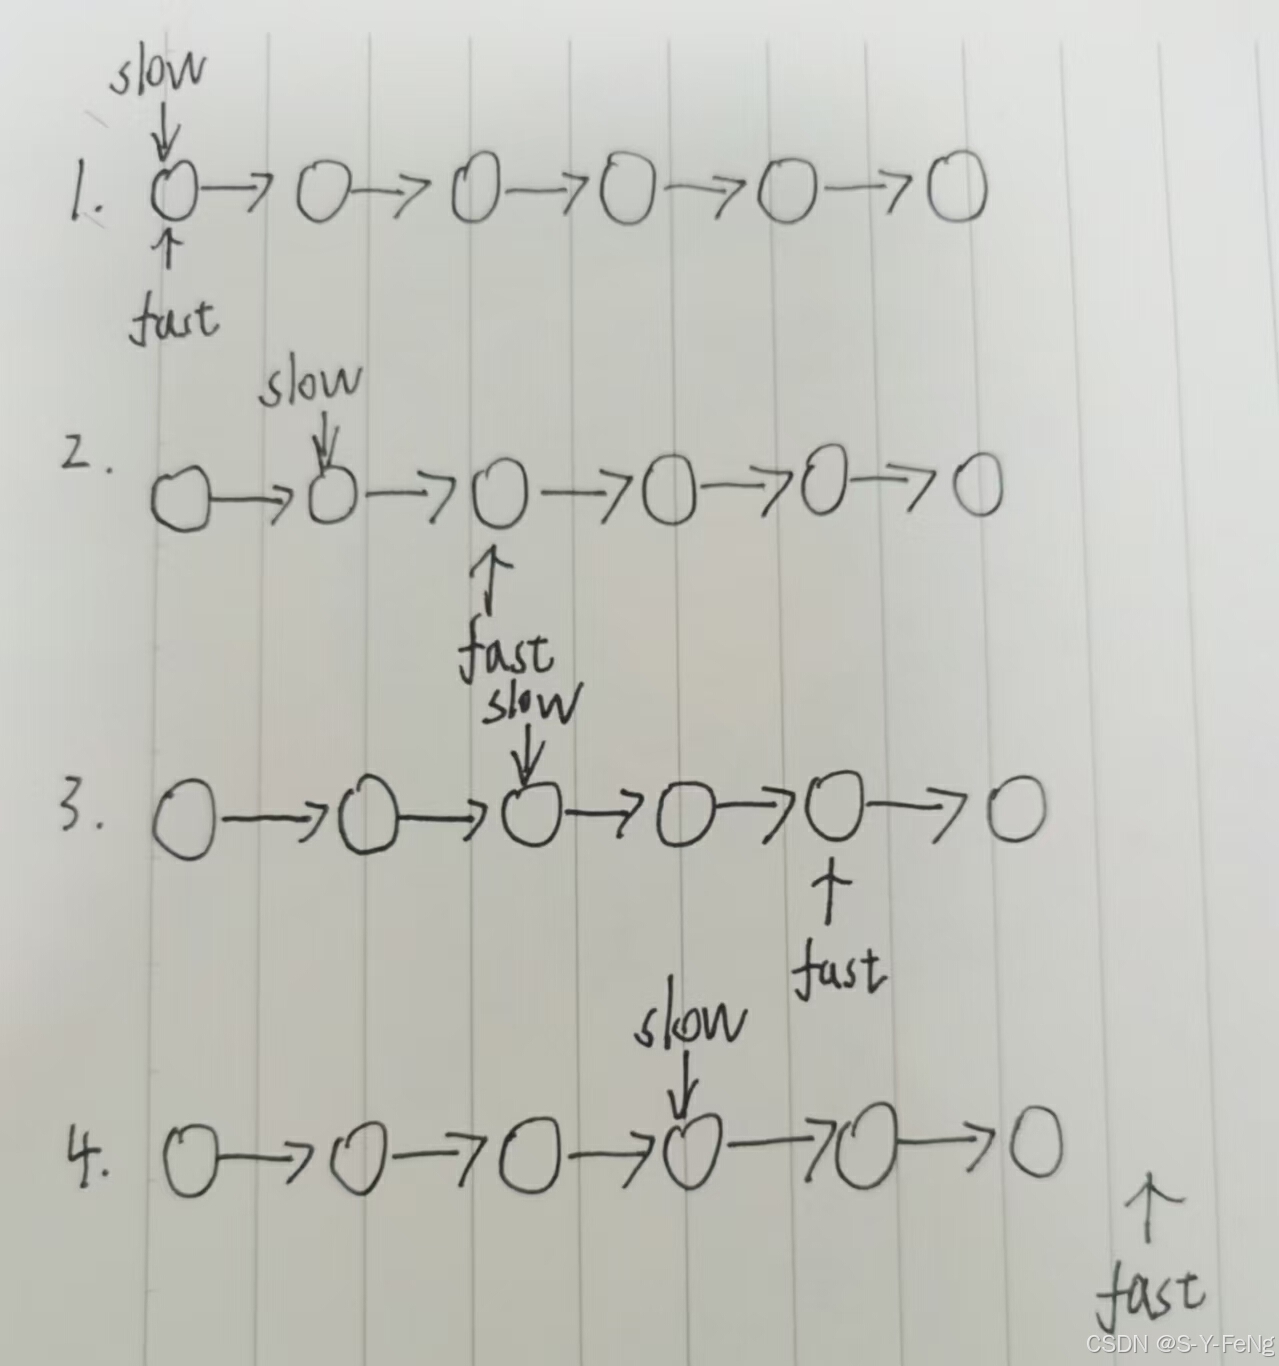 slow
1.
fast
slow
2.
fast
slow
3.
fast
slow
4.
fast
CSDN @S-Y-FeNg